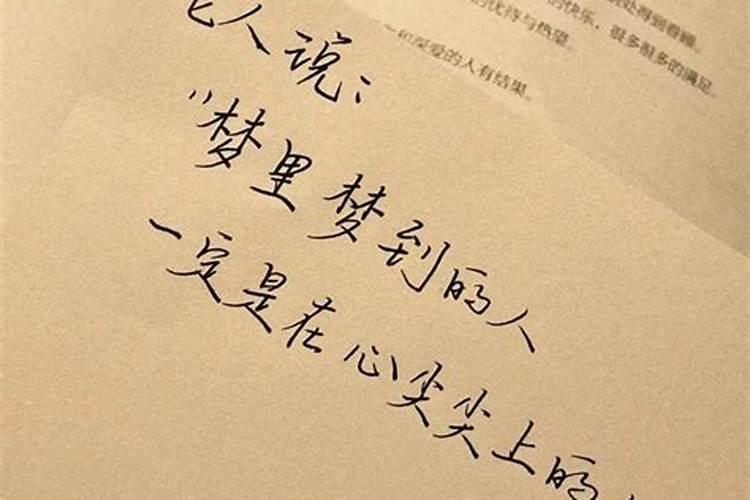 处得到眷顾。
的快乐，很多很多的满足。
的优待与热望。
和深爱的人有结果。
人说：
“梦里梦到的人
一定是在心尖尖上的